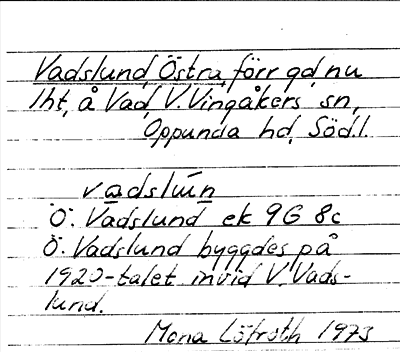 Vadslund, Östra, förr gd, nu
lht, å Vad, V. Vingåkers sn,
Oppunda hd, Södl.
vadslun
Ö. Vadslund ek 9G 8c
Ö. Vadslund byggdes på
1920-talet invid V. Vads-
lund.
Mona Löfroth 1973